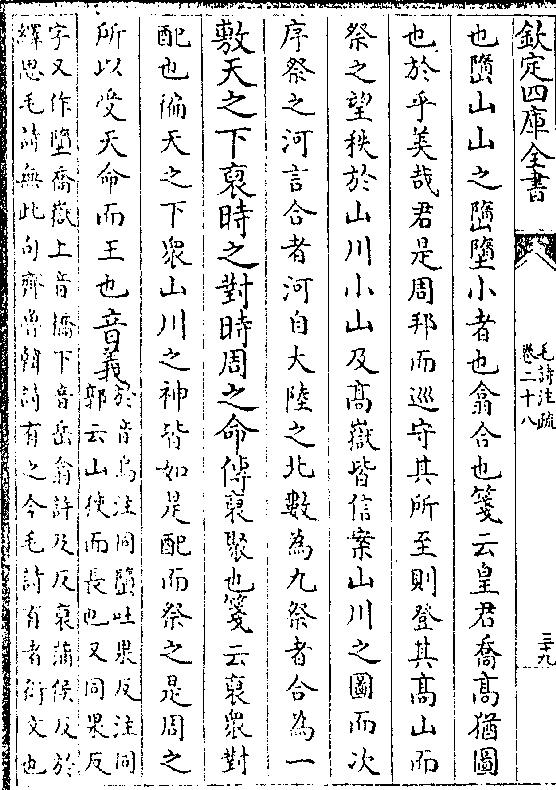 欽定四庫全書
毛詩注疏
卷二十八
三十九
也隋山山之隋墮小者也翕合也箋云皇君喬高猶圖
也於乎美哉君是周邦而巡守其所至則登其高山而
祭之望秩於山川小山及高嶽皆信案山川之圖而次
序祭之河言合者河自大陸之北敷為九祭者合為一
敷天之下裒時之對時周之命傳裒聚也箋云裒衆對
配也徧天之下衆山川之神皆如是配而祭之是周之
所以受天命而王也音義於音烏注同墮吐果反注同
郭云山狹而長也又同果反
字又作墮喬嶽上音橋下音岳翕許及反裒蒲侯反於
繹思毛詩無此句齊魯韓詩有之今毛詩有者衍文也